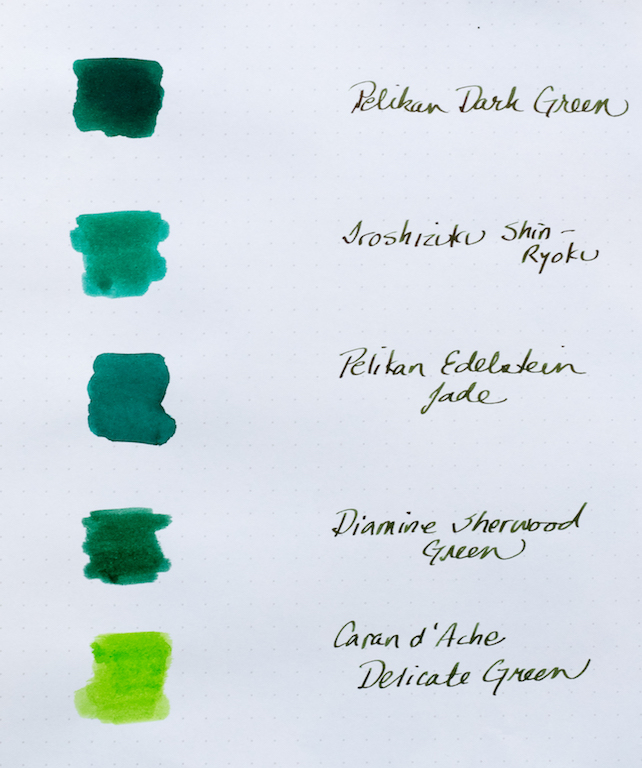 Pelikan Dark Green
Iroshizuku Shin-
Ryoku
Pelikan Edelstein
Jade
Diamine Sherwood
Green
Caran d'Ache
Delicate Green